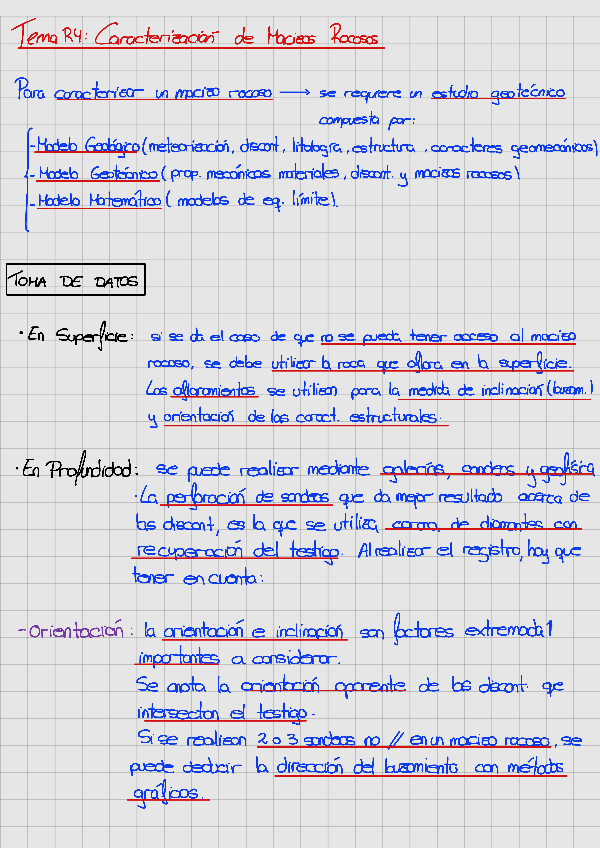 Tema R4: Caracterización de Macizos Rocosos
Para caracterizar un macizo rocoso → se requiere un estudio geotécnico
compuesta por:
- Modelo Geológico (meteorización, discont, litología, estructura, caracteres geomecánicos)
- Modelo Geotécnico (prop. mecánicas materiales, discont. y macizos rocosos)
- Modelo Matemático (modelos de eq. límite).
TOMA DE DATOS
· En Superficie: si se da el caso de que no se pueda tener acceso al macizo
rocoso, se debe utilizar la roca que aflora en la superficie.
Los afloramientos se utilizan para la medida de inclinación (buzam.)
y orientación de las caract. estructurales.
· En Profundidad: se puede realizar mediante galerías, sondeos y geofísica
· La perforación de sondeos que da mejor resultado acerca de
las discont, es la que se utiliza corona de diamantes con
recuperación del testigo. Al realizar el registro, hay que
tener en cuenta:
- Orientación: la orientación e inclinación son factores extremada1
importantes a considerar.
Se anota la orientación aparente de las discont. que
intersectan el testigo.
Si se realizan 2 o 3 sondeos no // en un macizo rocoso, se
puede deducir la dirección del buzamiento con métodos
gráficos.